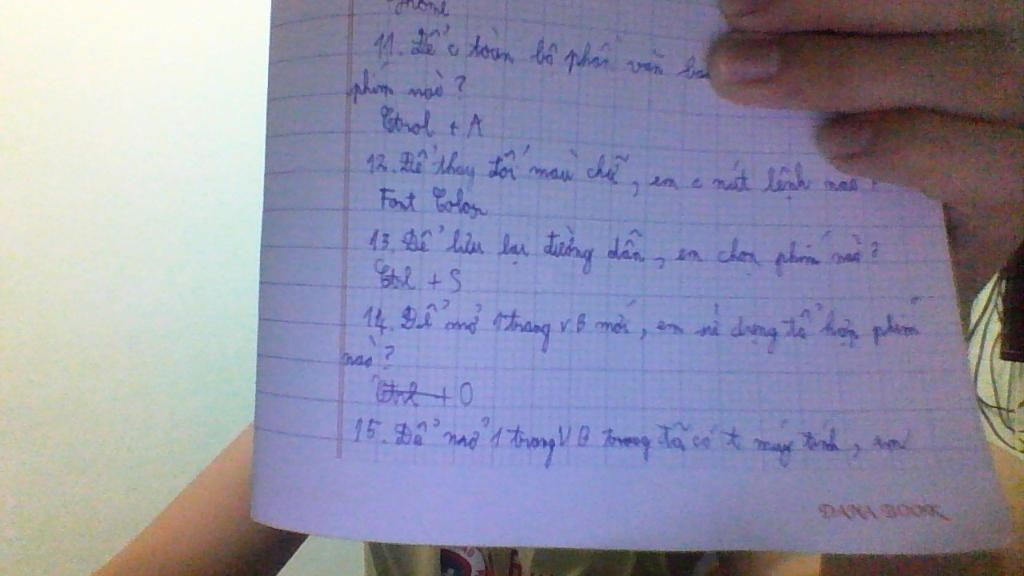 Home
11. Để c toàn bộ phần văn
phím nào?
Ctrol + A
12. Để thay đổi màu chữ, em c nút lệnh nào?
Font Color
13. Để lưu lại đường dẫn, em chọn phím nào?
Ctrl + S
14. Để mở 1 trang V.B mới, em sử dụng tổ hợp phím
nào?
Ctrl + O
15. Để mở 1 trang V B trong đã có t máy tính, em
DANA BOOK